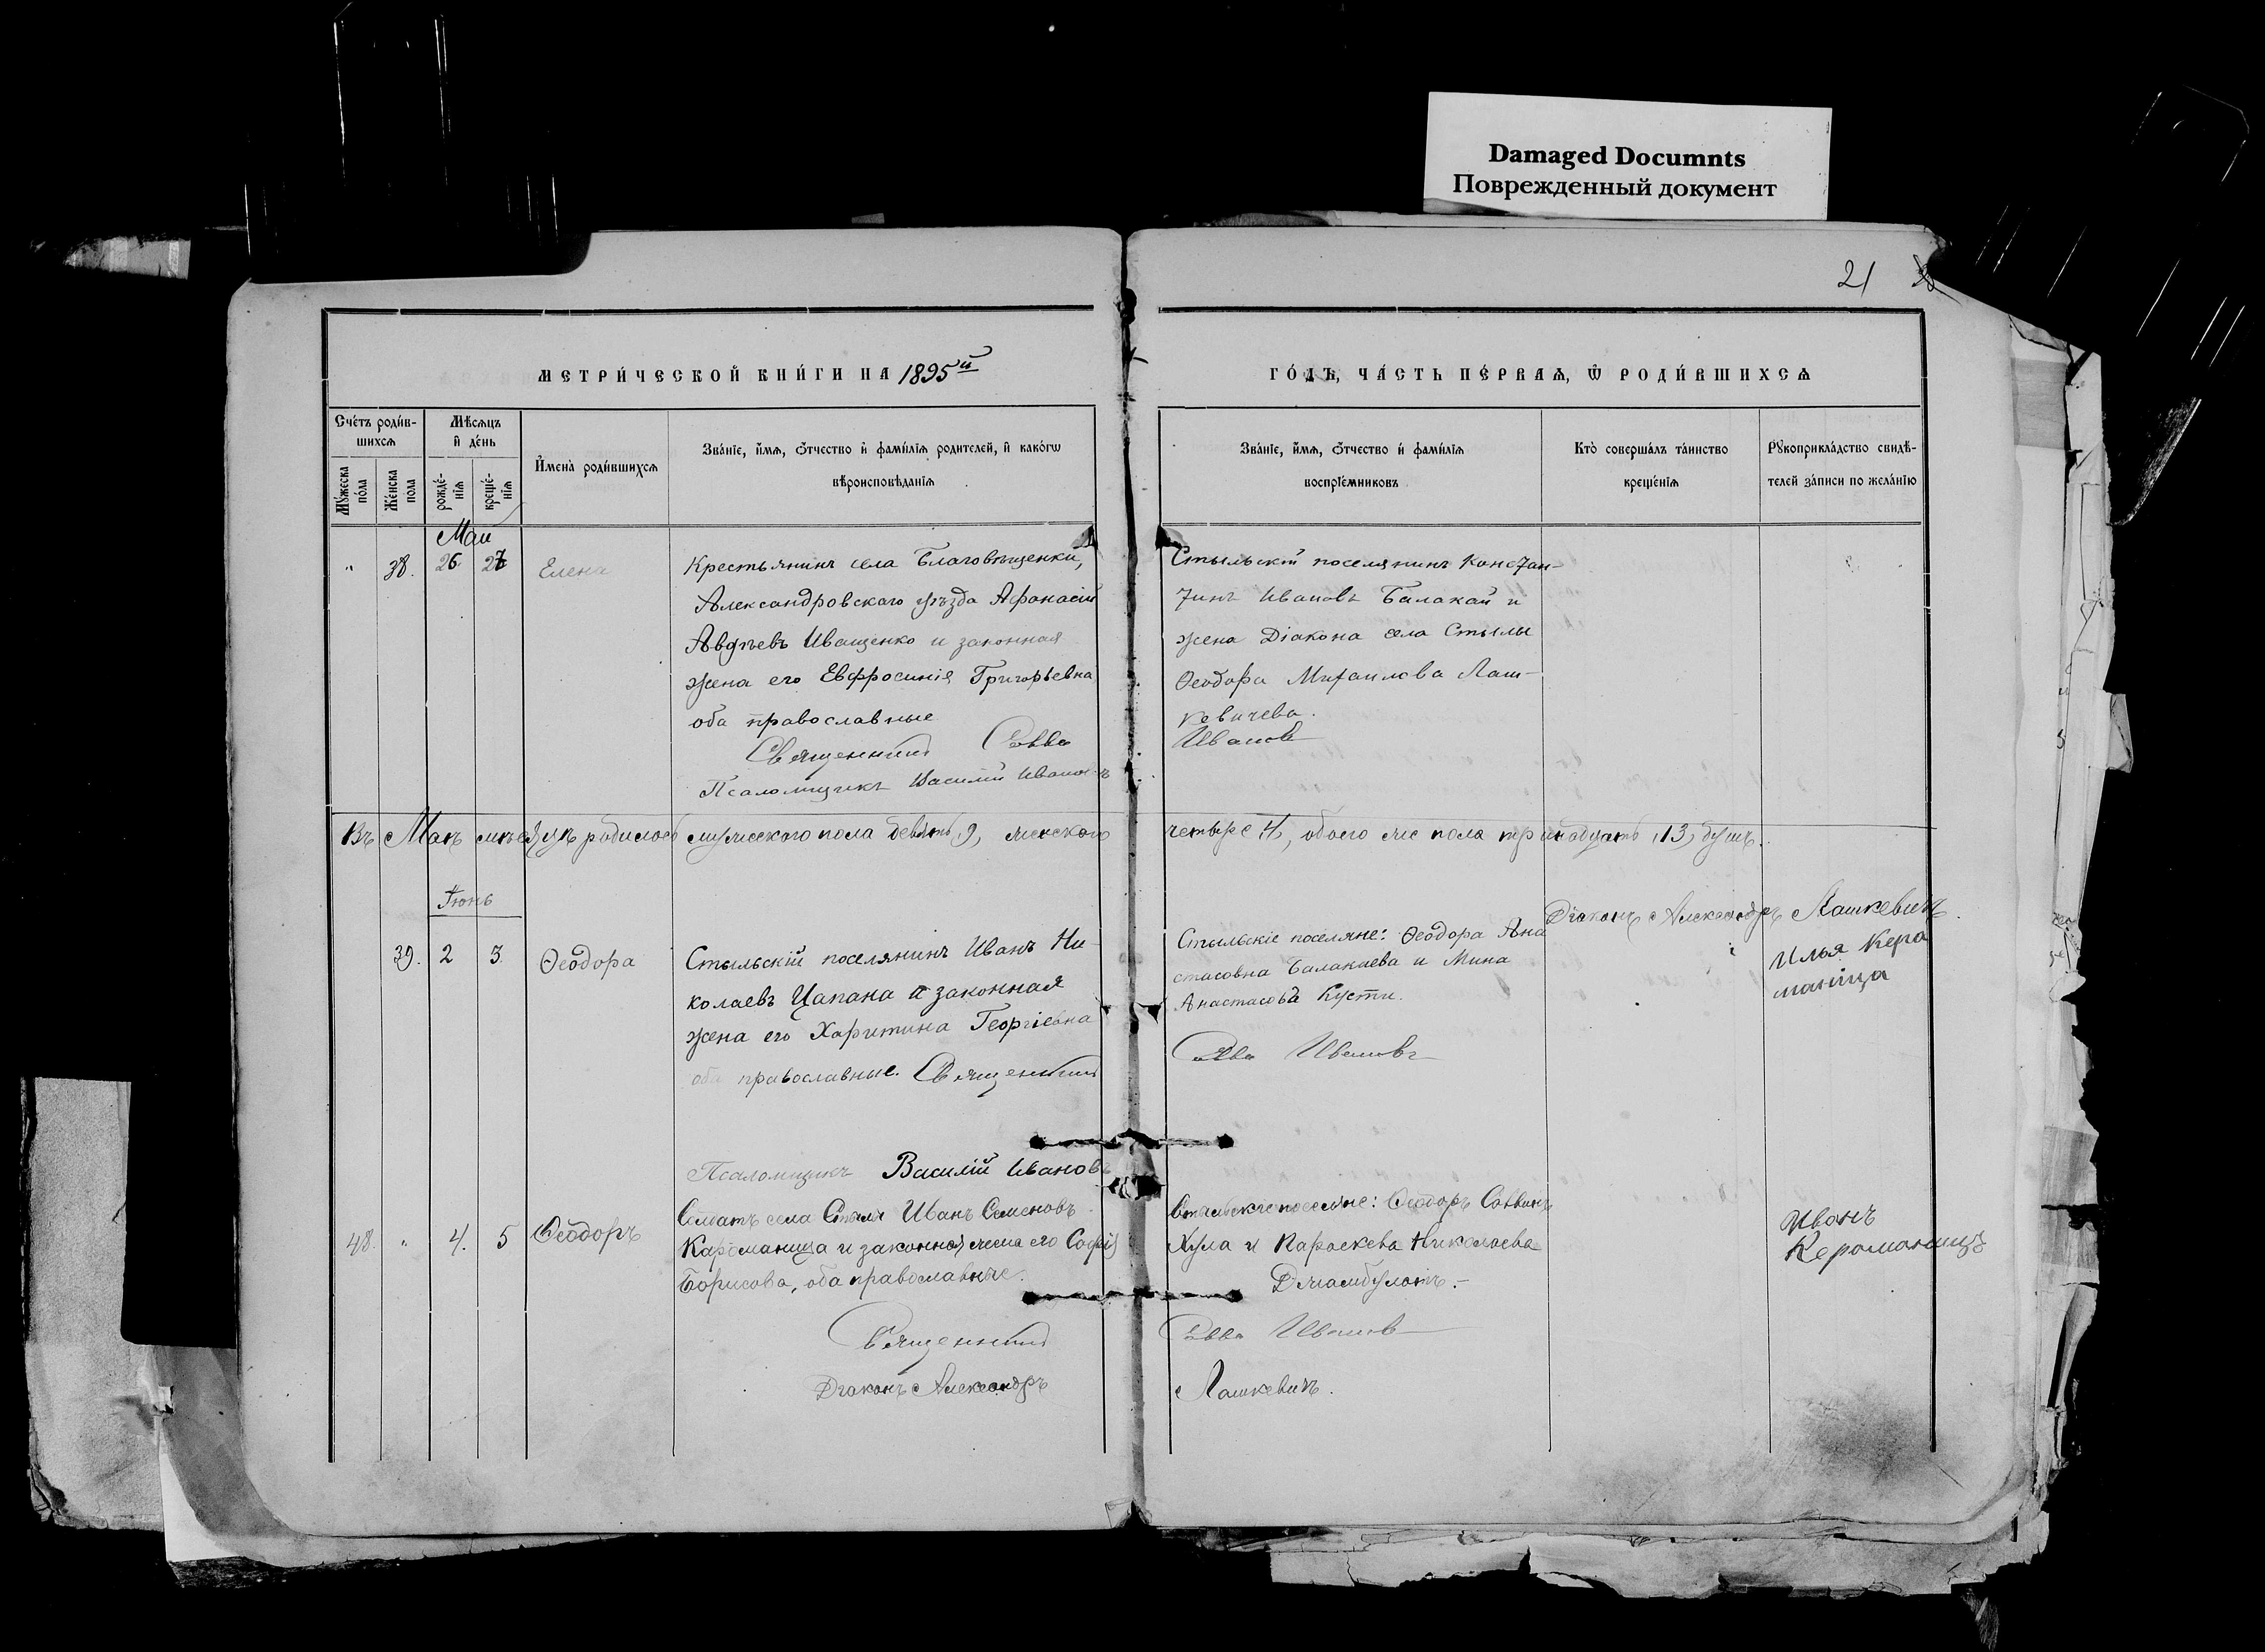 Damaged Documnts
Поврежденный документ
21
МЕТРИ́ЧЕСКОЙ КНИ́ГИ НА 1895й
ГО́ДЪ, ЧА́СТЬ ПЕ́РВАѦ, Ѿ РОДИ́ВШИХСѦ
Сче́тъ роди́в-
шихсѧ
Му́жеска
по́ла
Же́нска
по́ла
Мѣ́сѧцъ
и҆ де́нь
рожде́-
нїѧ
креще́-
нїѧ
И҆мена̀ роди́вшихсѧ
Зва́нїе, и҆́мѧ, ѻ҆́тчество и҆ фами́лїѧ родителей, и҆ како́гѡ
вѣроисповѣ́данїѧ
Зва́нїе, и҆́мѧ, ѻ҆́тчество и҆ фами́лїѧ
воспрїе́мниковъ
Кто̀ соверша́лъ та́инство
креще́нїѧ
Рꙋкоприкла́дство свидѣ́-
телей за́писи по жела́нїю
Май
" 38. 26 27 Елена
Крестьянинъ села Благовѣщенки,
Александровскаго уѣзда Афанасій
Авдѣевъ Иващенко и законная
жена его Евфросинія Григорьевна
оба православные
Священникъ Савва
Псаломщикъ Василій Ивановъ
Стыльскій поселянинъ Констан-
тинъ Ивановъ Балакай и
жена Діакона села Стылы
Ѳеодора Михаилова Лаш-
кевичева.
Ивановъ
Въ Маѣ мѣсяцѣ родилось мужескаго пола девять, 9, женскаго четыре 4, обоего же пола тринадцать, 13, душъ.
Діаконъ Александръ Лашкевичъ.
Іюнь
39. 2 3. Ѳеодора
Стыльскій поселянинъ Иванъ Ни-
колаевъ Цапана и законная
жена его Харитина Георгіевна
оба православные. Священникъ
Псаломщикъ Василій Ивановъ
Стыльскіе поселяне: Ѳеодора Ана
стасовна Балакаева и Мина
Анастасовъ Кусти.
Савва Ивановъ
Илья Кера
маница
48. " 4. 5 Ѳеодоръ
Солдатъ села Стыля Иванъ Семеновъ
Караманица и законная жена его Софія
Борисова, оба православные.
Священникъ
Діаконъ Александръ
Стыльскіе поселяне: Ѳеодоръ Саввинъ
Хула и Параскева Николаева
Джамбулатъ.-
Савва Ивановъ
Лашкевичъ.
Иванъ
Кераманица